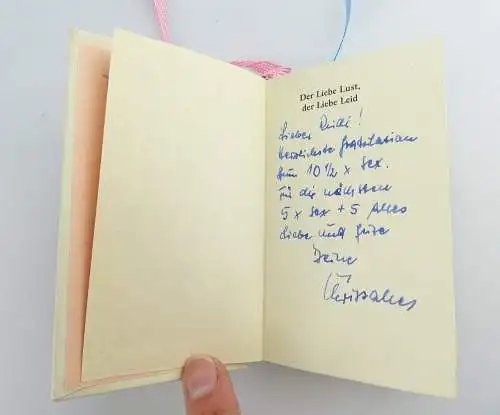 Der Liebe Lust,
der Liebe Leid
Lieber Rudi!
Herzlichste Gratulation
zum 10 1/2 x Sex.
Für die nächsten
5 x Sex + 5 Alles
Liebe und Gute
Deine